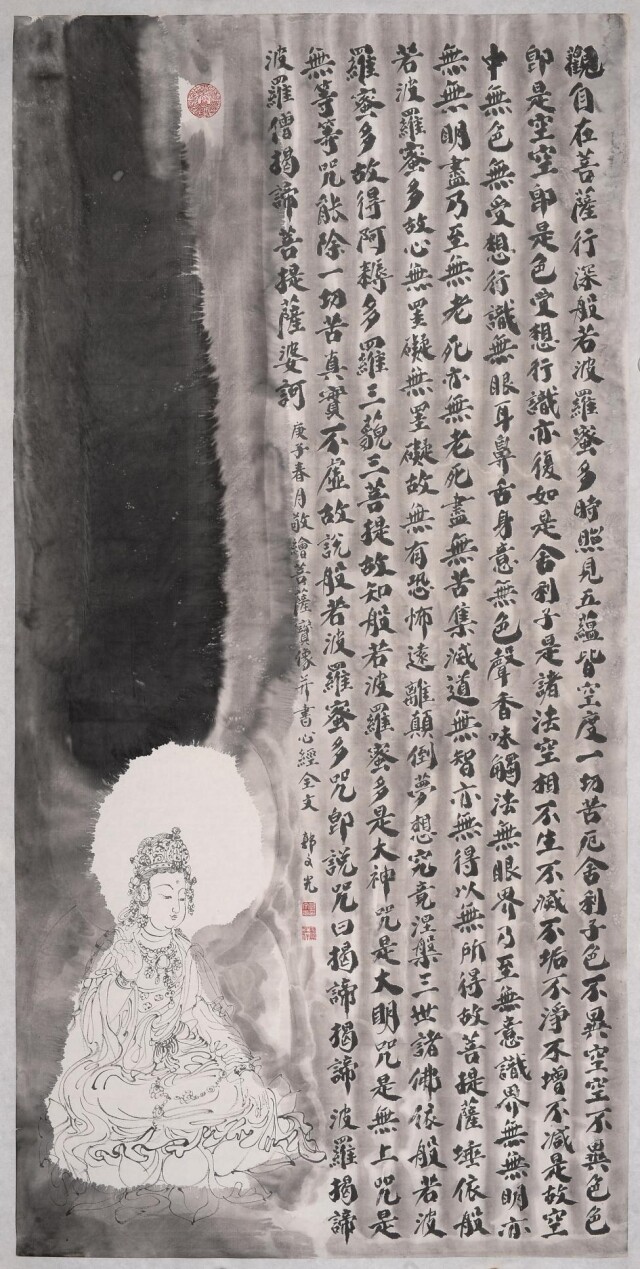 觀自在菩薩行深般若波羅蜜多時照見五蘊皆空度一切苦厄舍利子色不異空空不異色色
即是空空即是色受想行識亦復如是舍利子是諸法空相不生不滅不垢不淨不增不減是故空
中無色無受想行識無眼耳鼻舌身意無色聲香味觸法無眼界乃至無意識界無無明亦
無無明盡乃至無老死亦無老死盡無苦集滅道無智亦無得以無所得故菩提薩埵依般
若波羅蜜多故心無罣礙無罣礙故無有恐怖遠離顛倒夢想究竟涅槃三世諸佛依般若波
羅蜜多故得阿耨多羅三藐三菩提故知般若波羅蜜多是大神咒是大明咒是無上咒是
無等等咒能除一切苦真實不虛故說般若波羅蜜多咒即說咒曰揭諦揭諦波羅揭諦
波羅僧揭諦菩提薩婆訶
庚子春月敬繪菩薩寶像并書心經全文 郭文光